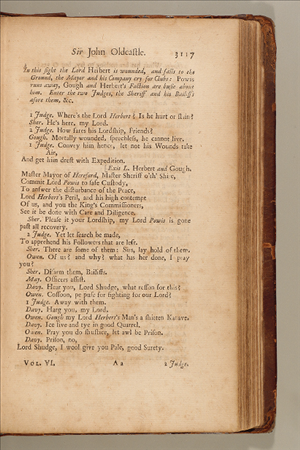 Sir John Oldcastle. 3117
In this fight the Lord Herbert is wounded, and falls to the
Ground, the Mayor and his Company cry for Clubs: Powis
runs away, Gough and Herbert's Faction are busie about
him. Enter the two Judges, the Sheriff and his Bailiffs
afore them, &c.
1 Judge. Where's the Lord Herbert? Is he hurt or slain?
Sher. He's here, my Lord.
2 Judge. How fares his Lordship, Friends?
Gough. Mortally wounded, speechless, he cannot live.
1 Judge. Convey him hence, let not his Wounds take
Air,
And get him drest with Expedition.
Exit L. Herbert and Gough.
Master Mayor of Hereford, Master Sheriff o'th' Shire,
Commit Lord Powis to safe Custody,
To answer the disturbance of the Peace,
Lord Herbert's Peril, and his high contempt
Of us, and you the King's Commissioners,
See it be done with Care and Diligence.
Sher. Please it your Lordship, my Lord Powis is gone
past all recovery.
2 Judge. Yet let search be made,
To apprehend his Followers that are left.
Sher. There are some of them: Sirs, lay hold of them.
Owen. Of us? and why? what has her done, I pray
you?
Sher. Disarm them, Bailiffs.
May. Officers assist.
Davy. Hear you, Lord Shudge, what resson for this?
Owen. Cossoon, pe puse for fighting for our Lord?
1 Judge. Away with them.
Davy. Harg you, my Lord.
Owen. Gough my Lord Herbert's Man's a shitten Knave.
Davy. Ice live and tye in good Quarrel.
Owen. Pray you do shustice, let awl be Prison.
Davy. Prison, no,
Lord Shudge, I wool give you Pale, good Surety.
VOL. VI. A a 2 Judge.